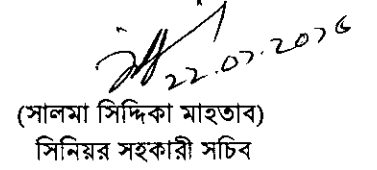 22.07.2026
(সালমা সিদ্দিকা মাহতাব)
সিনিয়র সহকারী সচিব